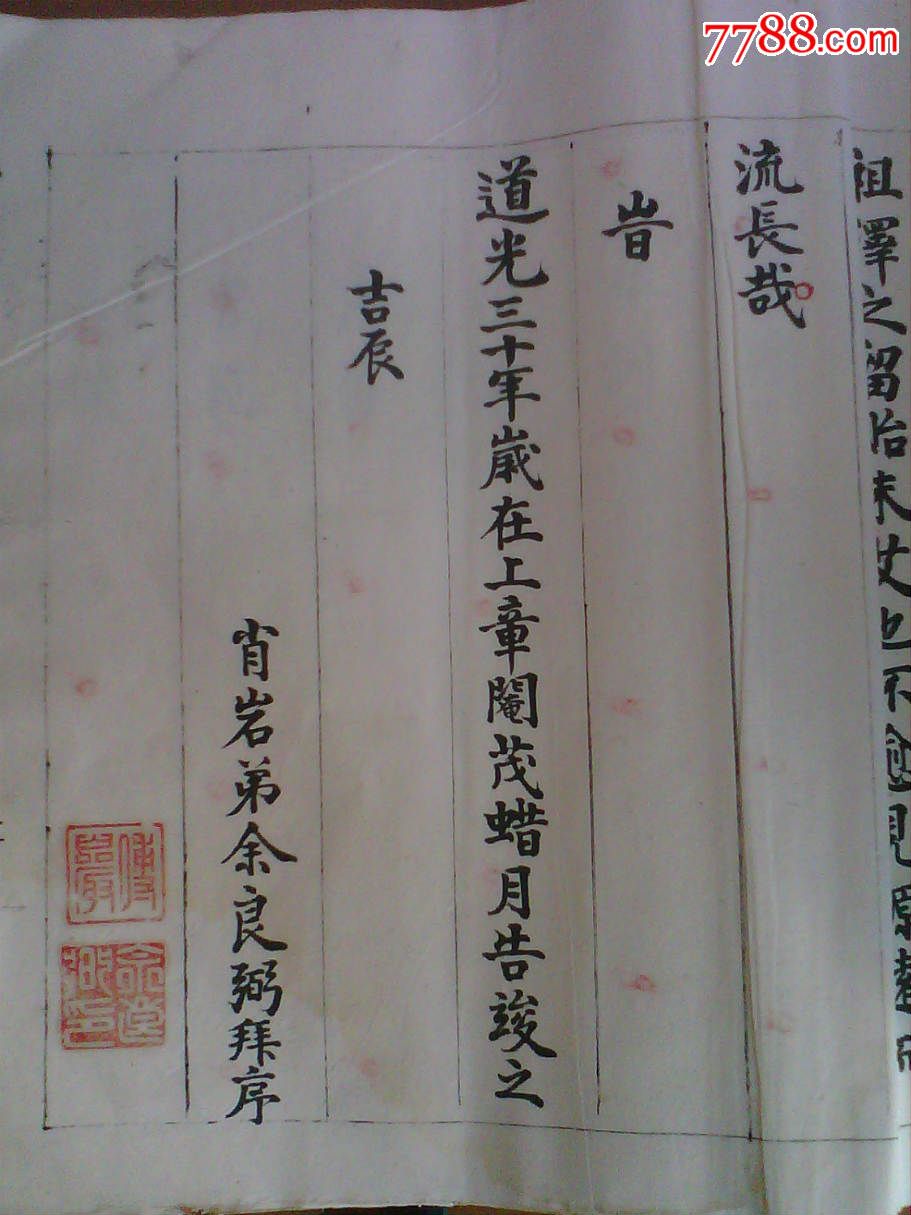 7788.com
祖澤之留治未艾也不
流長哉
旹
道光三十年歲在上章閹茂蜡月告竣之
吉辰
肖岩弟余良弼拜序